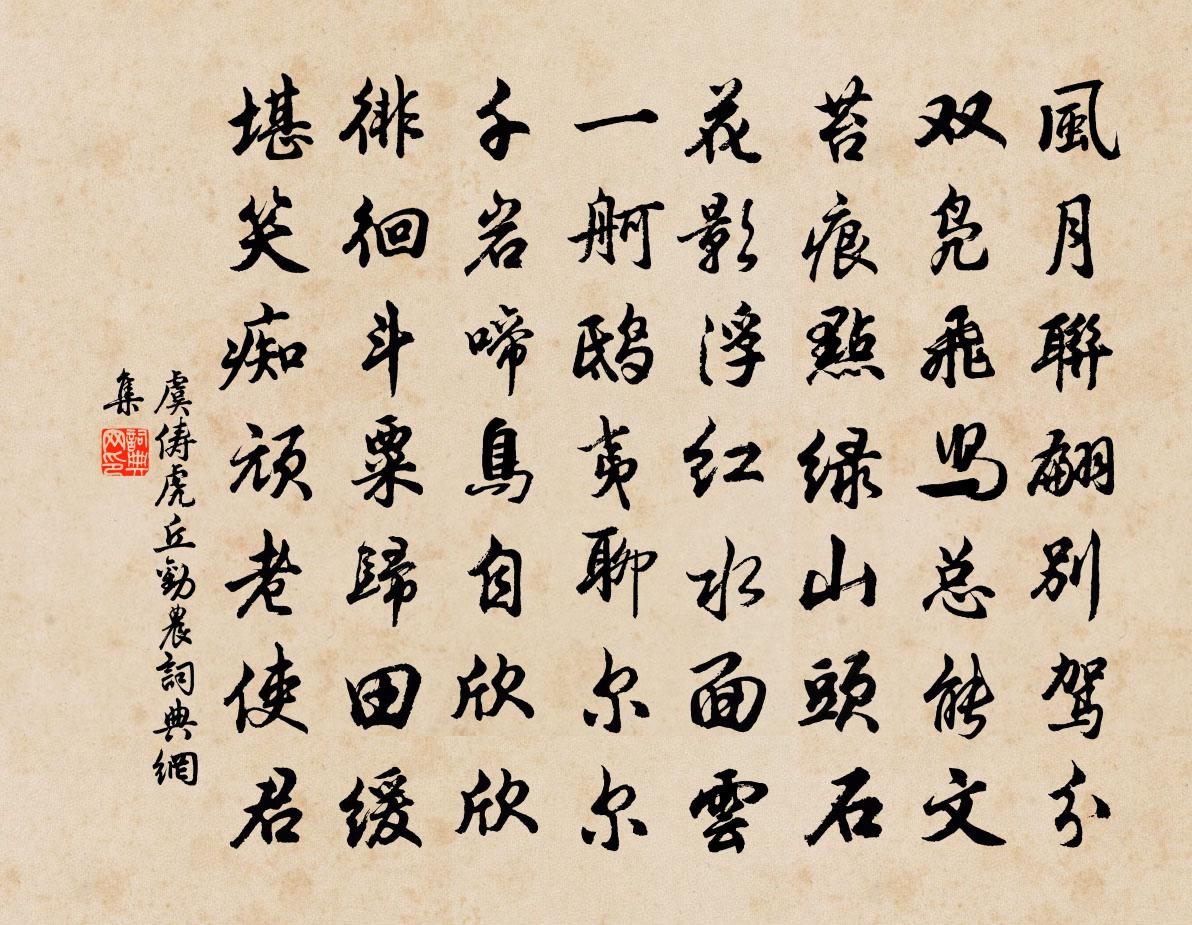 風月聯翩别駕分
双凫飛舄总能文
苔痕點绿山頭石
花影浮红水面雲
一舸鴟夷聊尔尔
千岩啼鳥自欣欣
徘徊斗粟歸田缓
堪笑痴顽老使君
虞儔虎丘勸農詞典網
集
詞典
网印